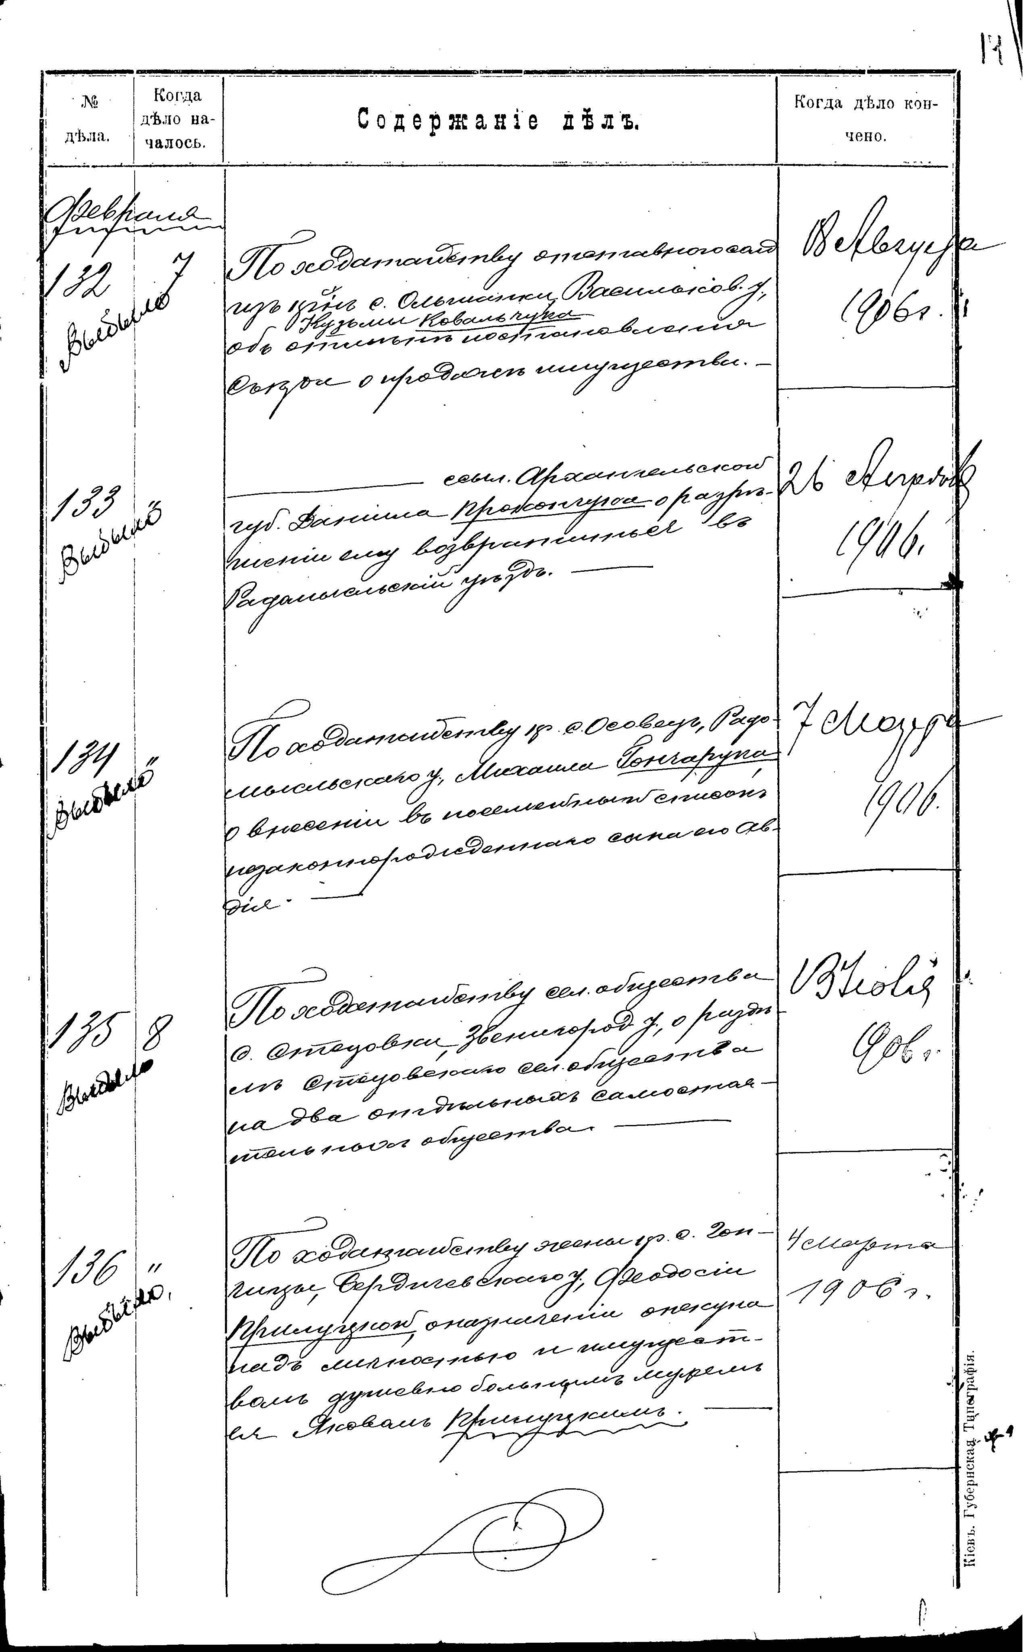 № дѣла.
Когда дѣло началось.
Содержаніе дѣлъ.
Когда дѣло кончено.
Февраля
132 7
Выбыло
По ходатайству отставного солд
изъ с. Ольшанки, Васильков. у,
Кузьмы Ковальчука
объ отмѣнѣ постановленія
Съѣзда о продажѣ имущества. —
18 Августа
1906 г.
133 "
Выбыло
ссыл. Архангельской
губ. Даніила Прокопчука о разрѣ-
шеніи ему возвратиться въ
Радомысльскій уѣздъ. —
26 Апрѣля
1906.
134 "
Выбыло
По ходатайству кр. с. Осовецъ, Радо-
мысльскаго у, Михаила Гончарука
о внесеніи въ посемейный списокъ
незаконнорожденнаго сына его Ав-
дія. —
7 Марта
1906.
135 8
Выбыло
По ходатайству сел. общества
с. Стецовки, Звенигород. у, о раздѣ-
лѣ Стецовскаго сел. общества
на два отдѣльныхъ самостоя-
тельныхъ общества. —
13 Іюля
906 г.
136 "
Выбыло.
По ходатайству жены кр. с. Гоп-
чицы, Бердичевскаго у, Феодосіи
Прилуцкой, о назначеніи опекуна
надъ личностью и имущест-
вомъ душевно больнымъ мужемъ
ея Яковомъ Прилуцкимъ. —
4 Марта
1906 г.
Кіевъ. Губернская Типографія.